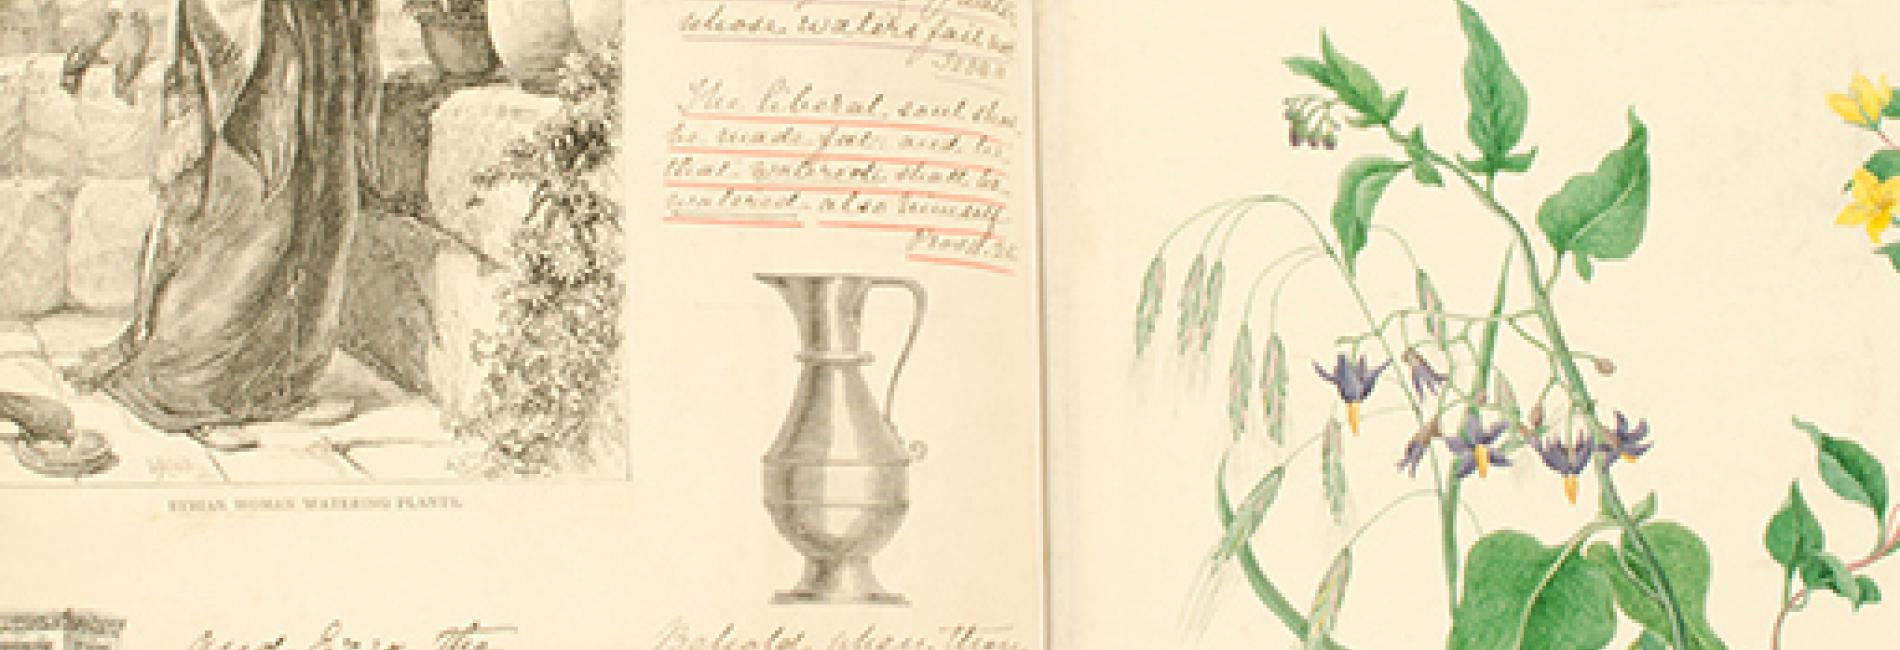 whose waters fail not
The liberal soul shall
be made fat: and he
that watereth shall be
watered also himself.
Prov.
SYRIAN WOMAN WATERING PLANTS.
and from the
Behold, when thou